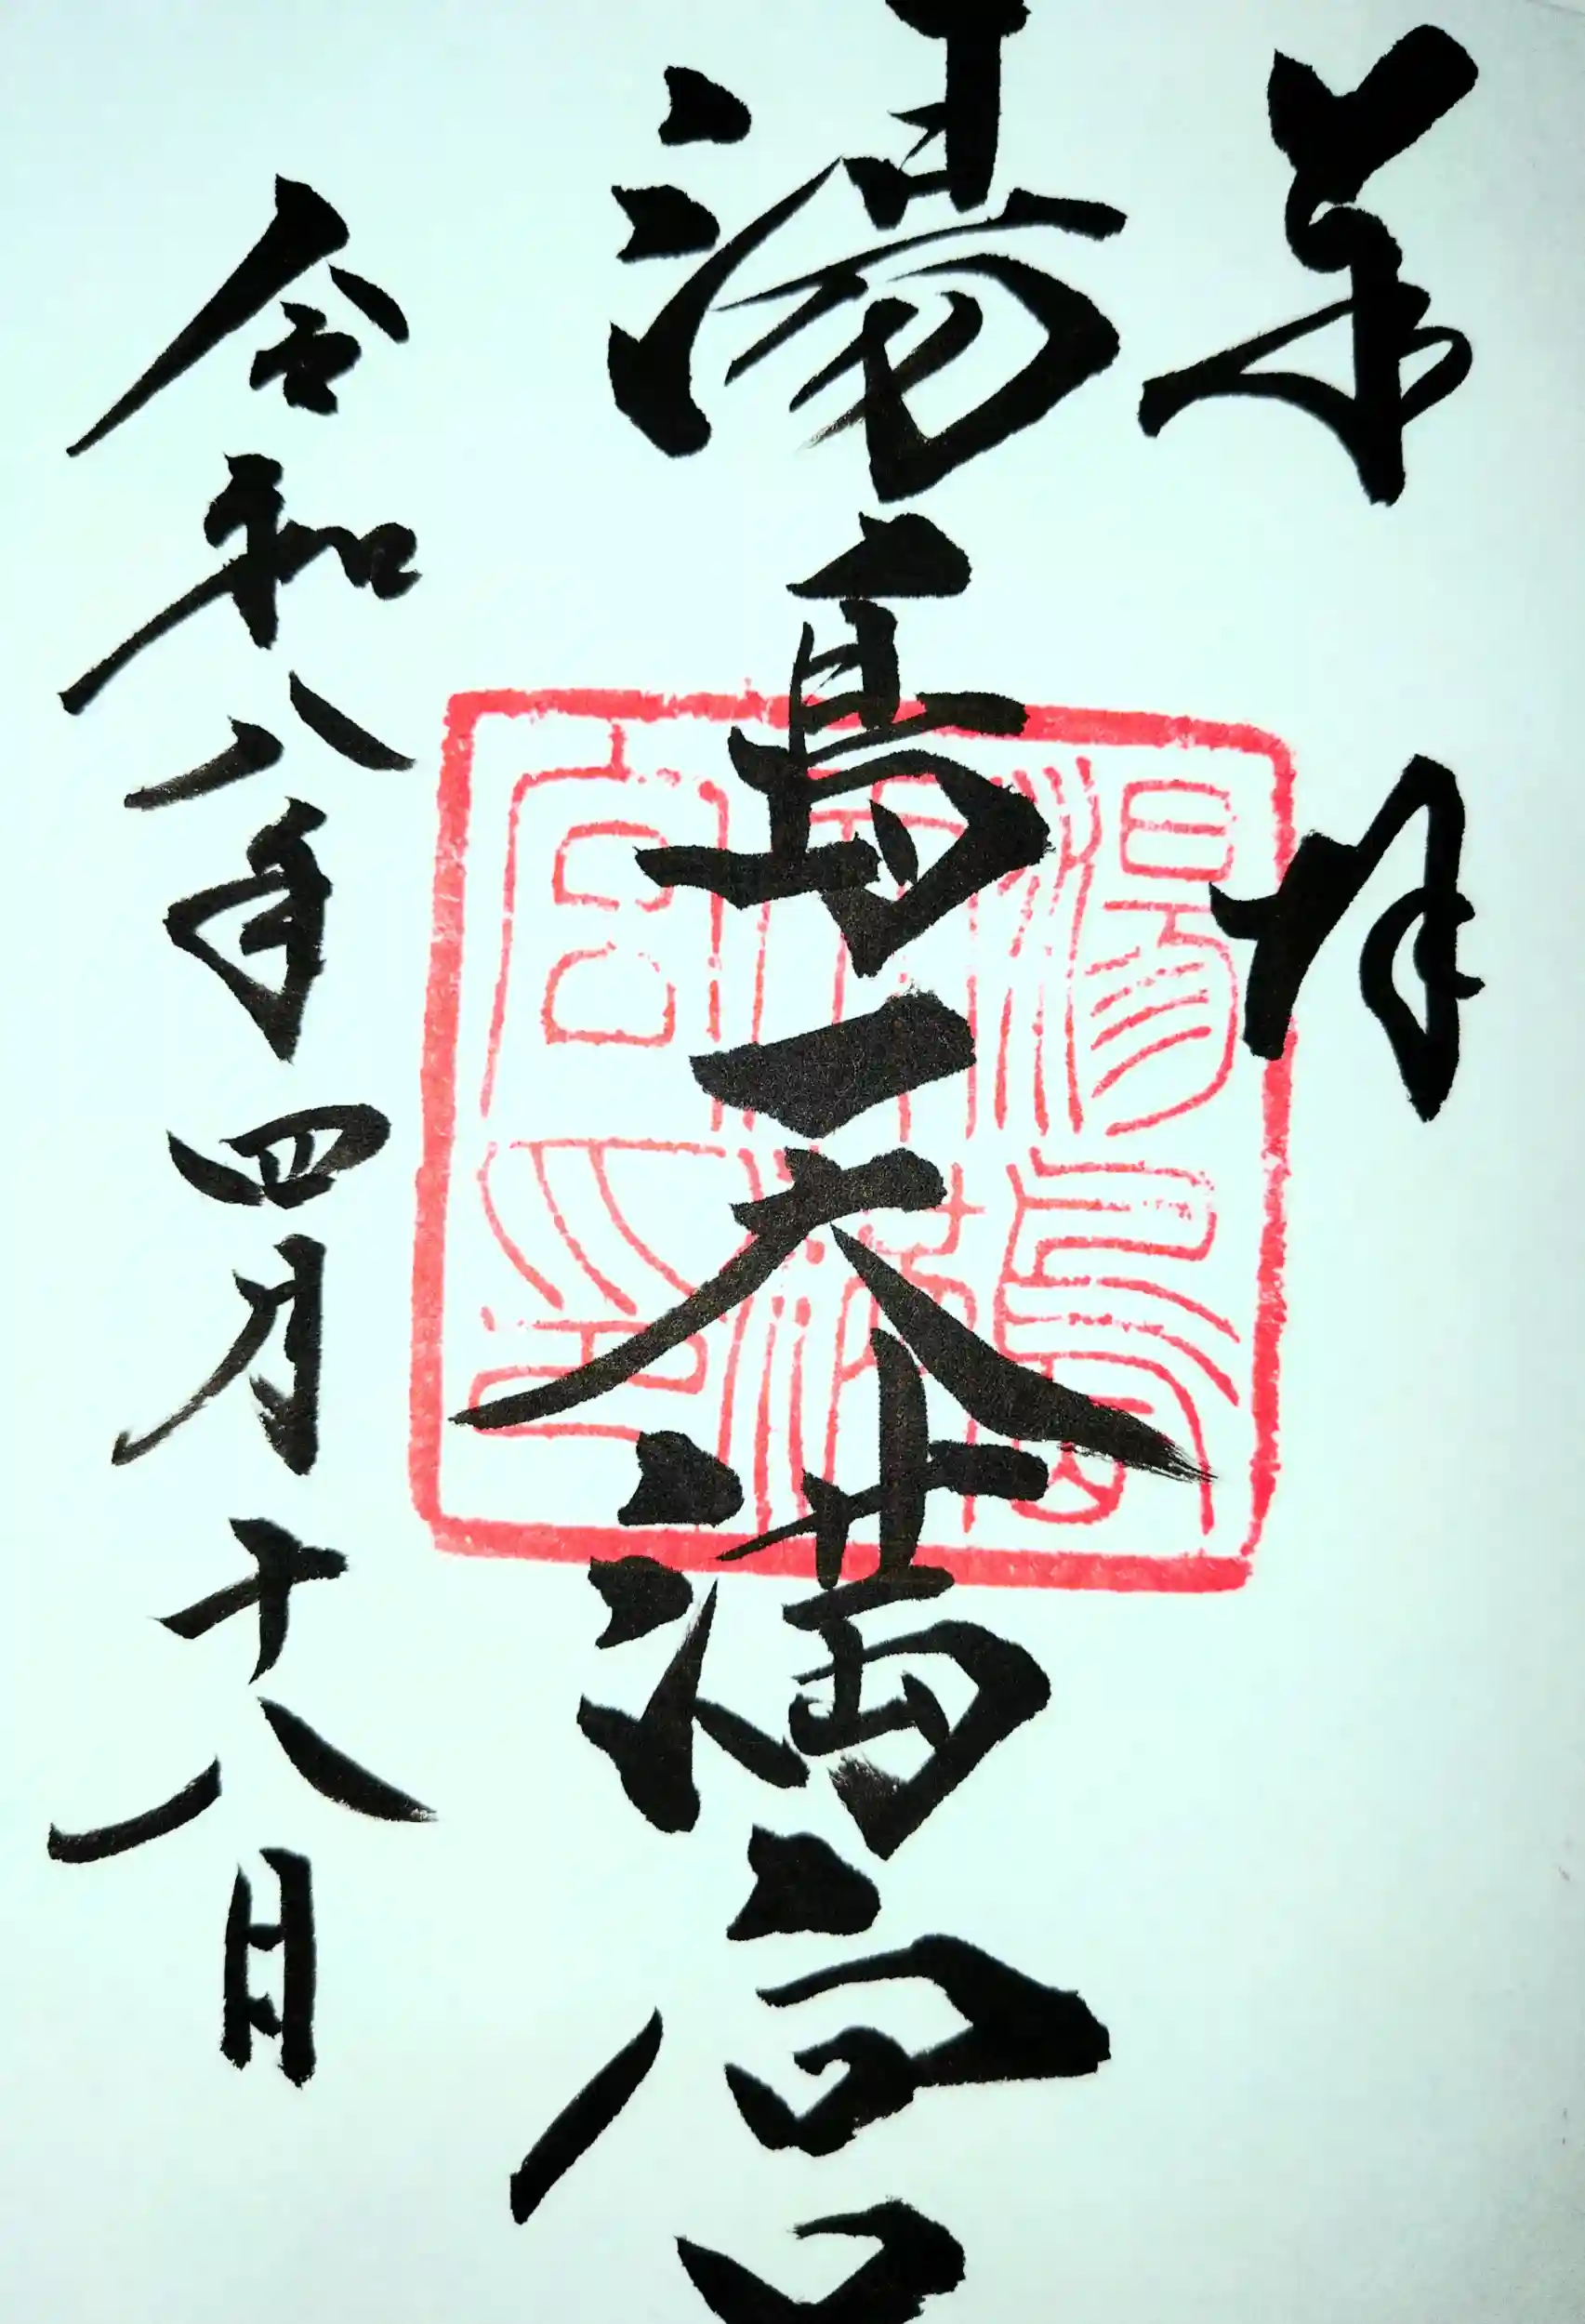 奉拝
湯島天満宮
令和八年四月十八日
湯島天満宮印